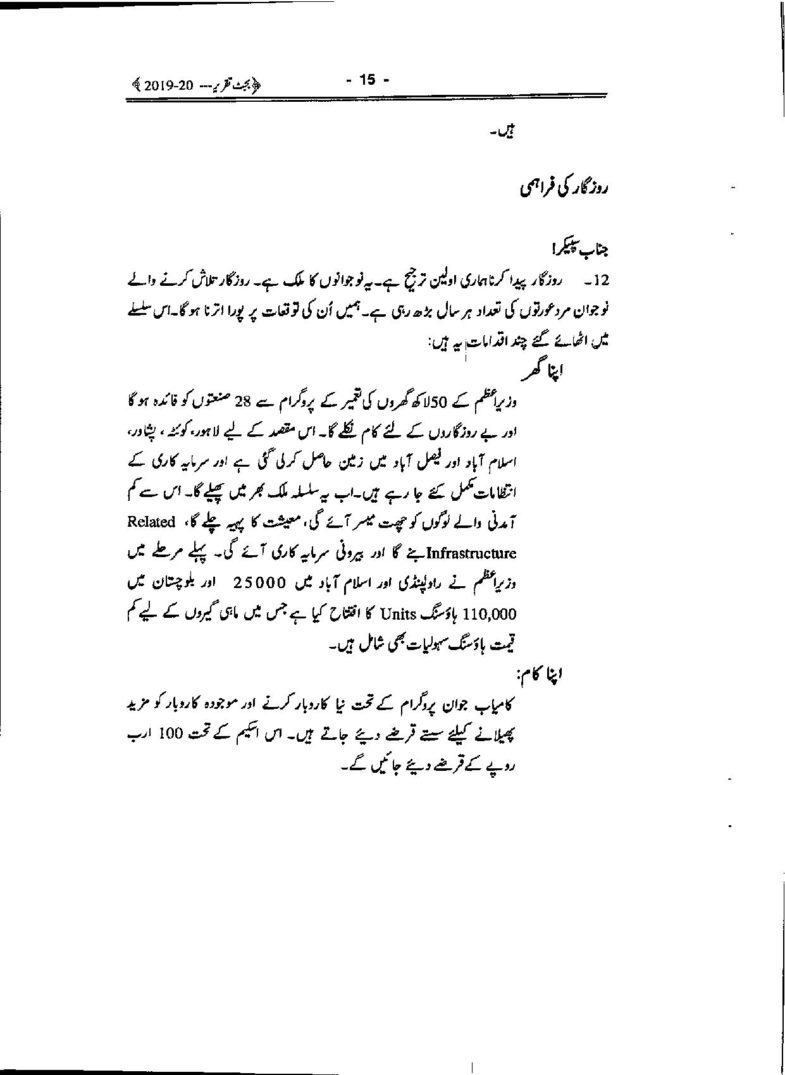 ﴿بجٹ تقریر--- 2019-20﴾
- 15 -
ہیں۔
روزگار کی فراہمی
جناب سپیکر!
12۔ روزگار پیدا کرنا ہماری اولین ترجیح ہے۔ یہ نوجوانوں کا ملک ہے۔ روزگار تلاش کرنے والے
نوجوان مرد عورتوں کی تعداد ہر سال بڑھ رہی ہے۔ ہمیں اُن کی توقعات پر پورا اترنا ہو گا۔ اس سلسلے
میں اٹھائے گئے چند اقدامات یہ ہیں:
اپنا گھر
وزیراعظم کے 50لاکھ گھروں کی تعمیر کے پروگرام سے 28 صنعتوں کو فائدہ ہو گا
اور بے روزگاروں کے لئے کام نکلے گا۔ اس مقصد کے لیے لاہور، کوئٹہ ، پشاور،
اسلام آباد اور فیصل آباد میں زمین حاصل کرلی گئی ہے اور سرمایہ کاری کے
انتظامات مکمل کئے جا رہے ہیں۔اب یہ سلسلہ ملک بھر میں پھیلے گا۔ اس سے کم
آمدنی والے لوگوں کو چھت میسر آئے گی، معیشت کا پہیہ چلے گا، Related
Infrastructure بنے گا اور بیرونی سرمایہ کاری آئے گی۔ پہلے مرحلے میں
وزیراعظم نے راولپنڈی اور اسلام آباد میں 25000 اور بلوچستان میں
110,000 ہاؤسنگ Units کا افتتاح کیا ہے جس میں ماہی گیروں کے لیے کم
قیمت ہاؤسنگ سہولیات بھی شامل ہیں۔
اپنا کام:
کامیاب جوان پروگرام کے تحت نیا کاروبار کرنے اور موجودہ کاروبار کو مزید
پھیلانے کیلئے سستے قرضے دیئے جاتے ہیں۔ اس اسکیم کے تحت 100 ارب
روپے کے قرضے دیئے جائیں گے۔